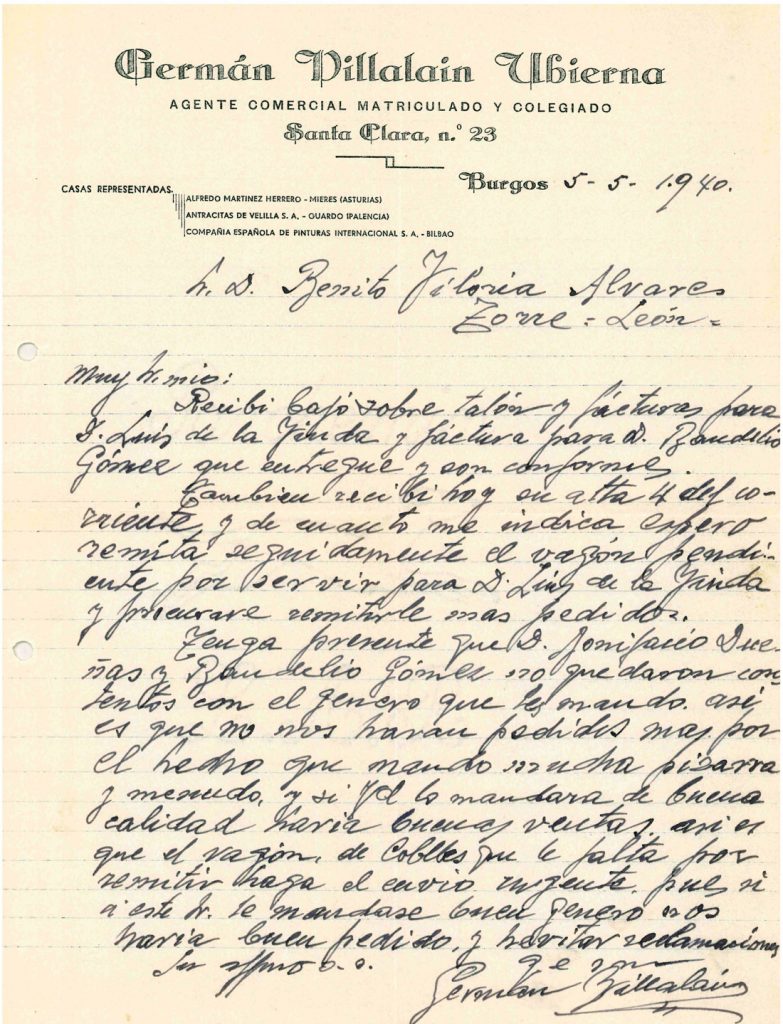 Germán Villalain Ubierna
AGENTE COMERCIAL MATRICULADO Y COLEGIADO
Santa Clara, n.º 23
Burgos 5-5-1.940.
CASAS REPRESENTADAS.
ALFREDO MARTINEZ HERRERO - MIERES (ASTURIAS)
ANTRACITAS DE VELILLA S. A. - GUARDO (PALENCIA)
COMPAÑIA ESPAÑOLA DE PINTURAS INTERNACIONAL S. A. - BILBAO
Sr. D. Benito Viloria Alvares
Torre = León =
Muy Sr. mio:
Recibi bajo sobre talón y facturas para
D. Luis de la Yinda y factura para D. Baudelio
Gómez que entregue y son conformes.
Tambien recibi hoy su atta 4 del co-
rriente, y de cuanto me indica espero
remita seguidamente el vagón pendi-
ente por servir para D. Luis de la Yinda
y procurare remitirle mas pedidos.
Tenga presente que D. Bonifacio Due-
ñas y Baudelio Gómez no quedaron con-
tentos con el genero que les mando. asi
es que no nos haran pedidos mas, por
el hecho que mando mucha pizarra
y menudo, y si Vd lo mandara de buena
calidad haria buenas ventas. asi es
que el vagón, de Cobbles que le falta por
remitir haga el envio urgente, pues si
a este Sr. le mandase buen genero nos
haria buen pedido, y hevitar reclamaciones
Su affmo s. s.
q e s m
German Villalain